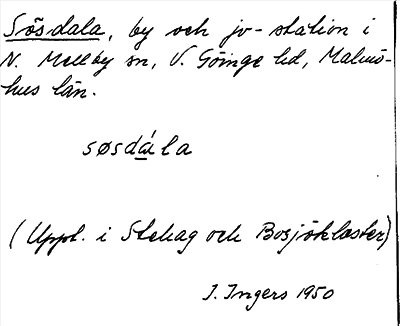 Sösdala, by och jv-station i
N. Mellby sn, V. Göinge hd, Malmö-
hus län.
søsdála
(Uppl. i Stehag och Bosjökloster)
I. Ingers 1950